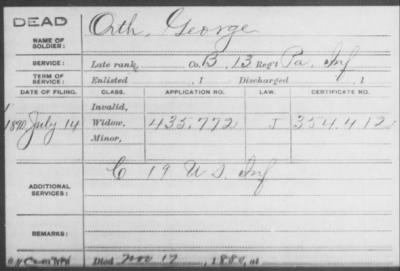 DEAD
NAME OF SOLDIER: Orth, George
SERVICE: Late rank, Co. B, 13 Reg't Pa. Inf
TERM OF SERVICE: Enlisted , 1 Discharged , 1
DATE OF FILING. CLASS. APPLICATION NO. LAW. CERTIFICATE NO.
Invalid,
1890 July 14 Widow, 435.772 J 354.412
Minor,
ADDITIONAL SERVICES: C 19 U S. Inf
REMARKS:
Died Nov 17, 1880, at